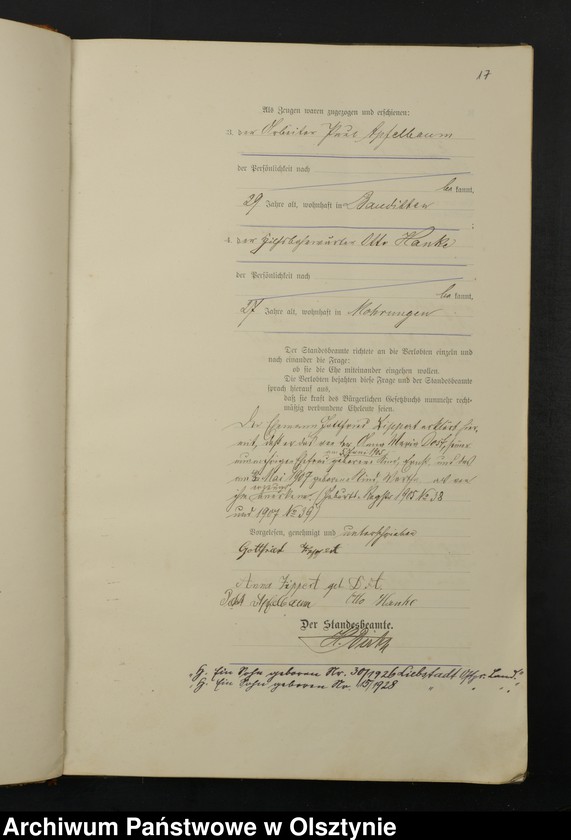 17
Als Zeugen waren zugezogen und erschienen:
der Arbeiter Paul Apfelbaum
der Persönlichkeit nach
be kannt,
29 Jahre alt, wohnhaft in Banditten
4. der Hilfsbahnwärter Otto Hanke
der Persönlichkeit nach
be kannt,
27 Jahre alt, wohnhaft in Mohrungen
Der Standesbeamte richtete an die Verlobten einzeln und
nach einander die Frage:
ob sie die Ehe miteinander eingehen wollen.
Die Verlobten bejahten diese Frage und der Standesbeamte
sprach hierauf aus,
daß sie kraft des Bürgerlichen Gesetzbuchs nunmehr recht-
mäßig verbundene Eheleute seien.
Der Ehemann Gottfried Zippert erklärt hier-
mit, daß er das von der Anna Maria seiner
nunmehrigen Ehefrau geborene Kind, und das
am Mai 1907 geborene Kind Martha als von
ihm erzeugt (Geburts Register 1905 No 38
und 1907 No 39)
Vorgelesen, genehmigt und unterschrieben
Gottfried Zippert
Anna Zippert geb
Apfelbaum Otto Hanke
Der Standesbeamte.
Ein Sohn geboren Nr. 30/1926 Liebstadt Land.
Ein Sohn geboren Nr. 15/1928 " " "
Archiwum Państwowe w Olsztynie